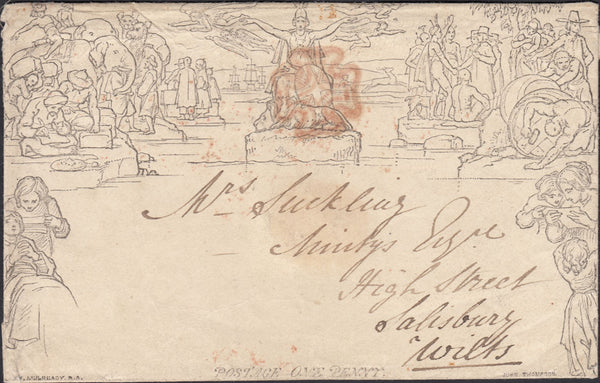 Mrs. Suckling
Mintys Esqre
High Street
Salisbury
Wilts
POSTAGE ONE PENNY.
W. MULREADY, R.A.
JOHN THOMPSON